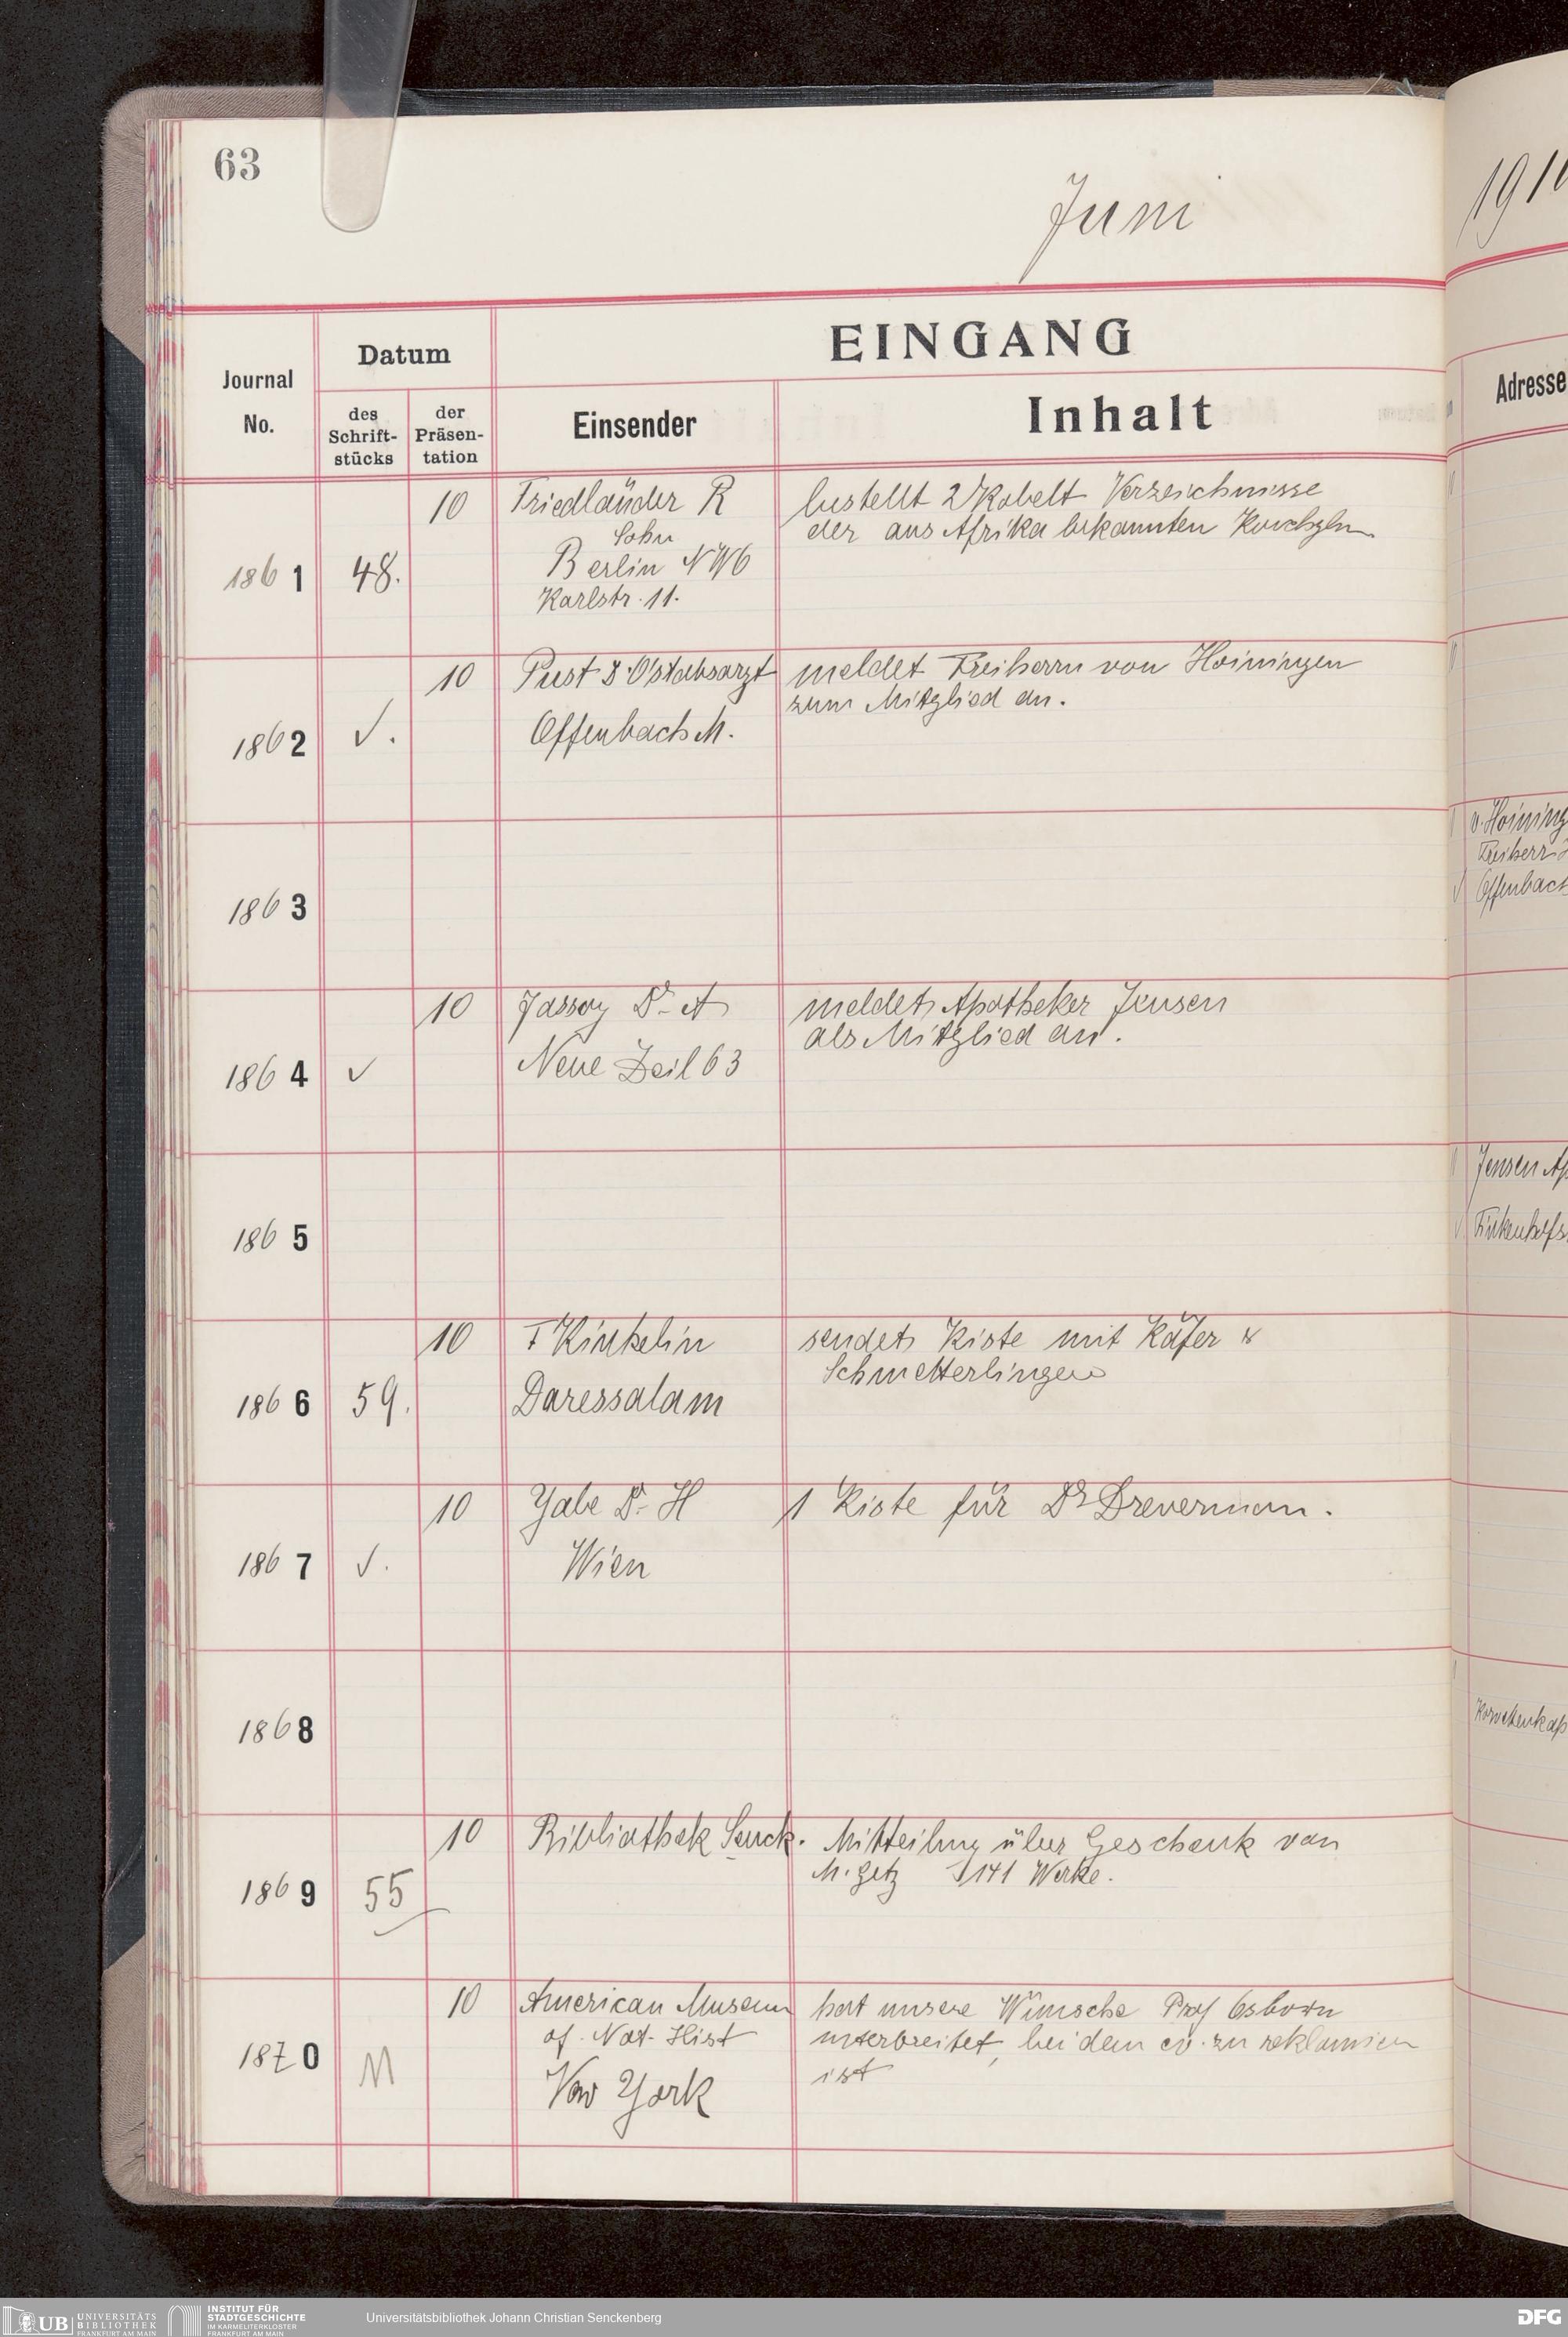 63
Juni
Journal
No.
Datum
des
Schrift-
stücks
der
Präsen-
tation
EINGANG
Einsender
Inhalt
1861
48.
10
Friedländer R
Sohn
Berlin NW6
Karlstr. 11.
bestellt 2 Kobelt Verzeichnisse
der aus Afrika bekannten Konchylien
1862
10
Pust Ostabsarzt
Offenbach M.
meldet Freiherrn von Hoiningen
zum Mitglied an.
1863
1864
10
Jassoy Dr A
Neue Zeil 63
meldet Apotheker Jensen
als Mitglied an.
1865
1866
59.
10
F Kinkelin
Daressalam
sendet Kiste mit Käfer &
Schmetterlingen
1867
10
Yabe Dr. H
Wien
1 Kiste für Dr Drevermann.
1868
1869
55
10
Bibliothek Senck.
Mitteilung über Geschenk von
M. Getz 141 Werke.
1870
M
10
American Museum
of Nat. Hist
New York
hat unsere Wünsche Prof Osborn
unterbreitet, bei dem ev. zu reklamieren
ist
191
Adresse
v. Hoining
Freiherr
Offenbach
Jensen Ap
Finkenhofs
UB
UNIVERSITÄTS
BIBLIOTHEK
FRANKFURT AM MAIN
INSTITUT FÜR
STADTGESCHICHTE
IM KARMELITERKLOSTER
FRANKFURT AM MAIN
Universitätsbibliothek Johann Christian Senckenberg
DFG